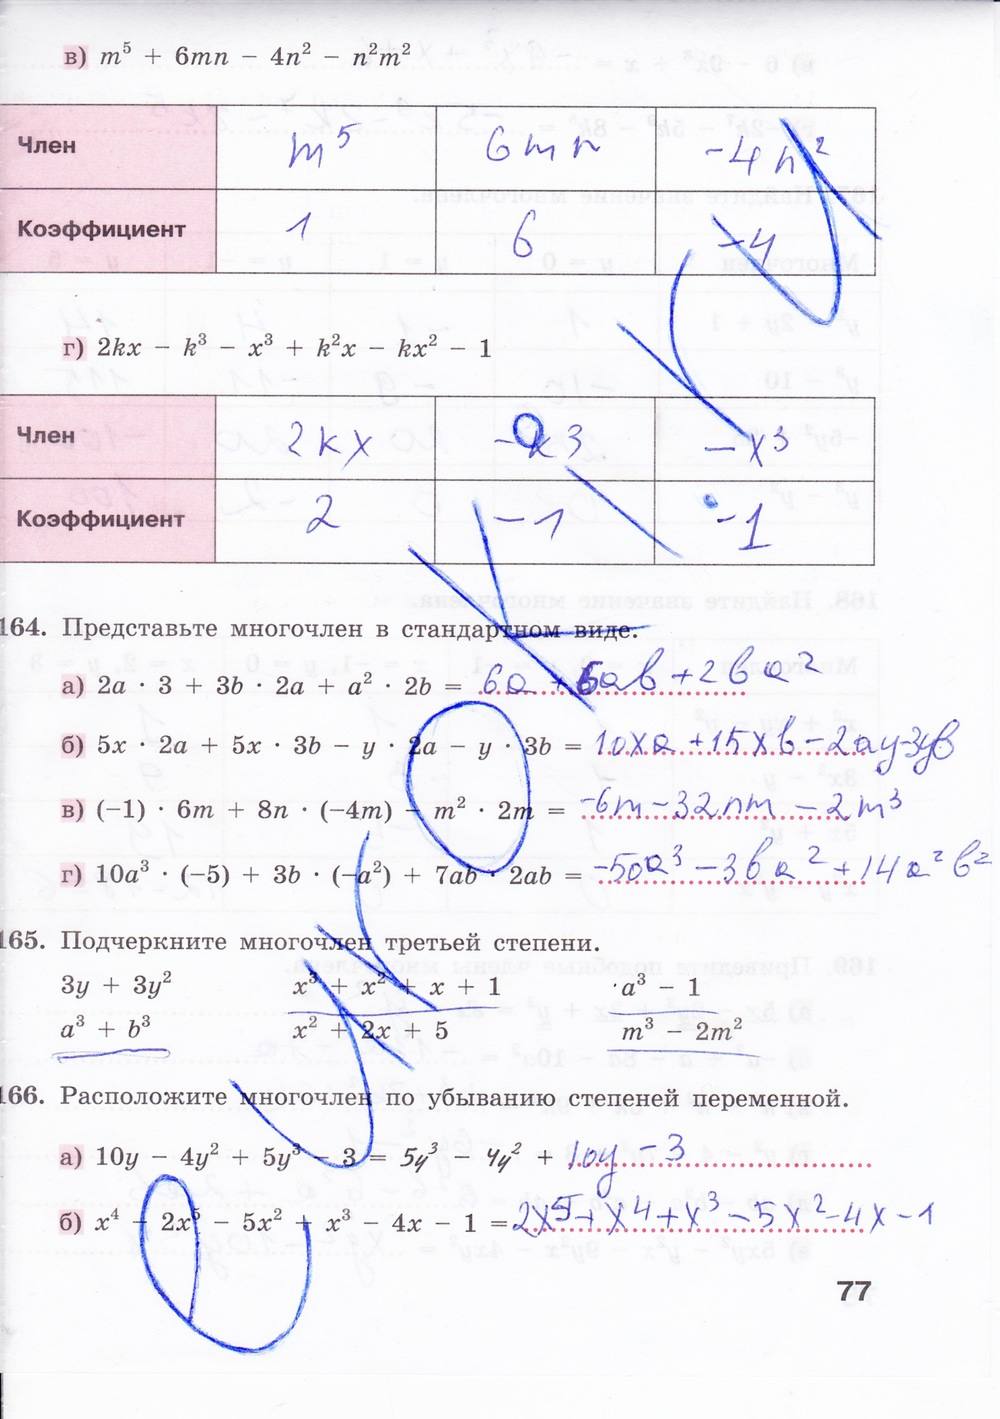 в) m⁵ + 6mn − 4n² − n²m²
Член m⁵ 6mn −4n²
Коэффициент 1 6 −4
г) 2kx − k³ − x³ + k²x − kx² − 1
Член 2kx −k3 −x³
Коэффициент 2 −1 −1
164. Представьте многочлен в стандартном виде.
а) 2a · 3 + 3b · 2a + a² · 2b = 6a + 6ab + 2ba²
б) 5x · 2a + 5x · 3b − y · 2a − y · 3b = 10xa + 15xb − 2ay − 3yb
в) (−1) · 6m + 8n · (−4m) − m² · 2m = −6m − 32nm − 2m³
г) 10a³ · (−5) + 3b · (−a²) + 7ab · 2ab = −50a³ − 3ba² + 14a²b²
165. Подчеркните многочлен третьей степени.
3y + 3y² x³ + x² + x + 1 a³ − 1
a³ + b³ x² + 2x + 5 m³ − 2m²
166. Расположите многочлен по убыванию степеней переменной.
а) 10y − 4y² + 5y³ − 3 = 5y³ − 4y² + 10y − 3
б) x⁴ + 2x⁵ − 5x² + x³ − 4x − 1 = 2x⁵ + x⁴ + x³ − 5x² − 4x − 1
77